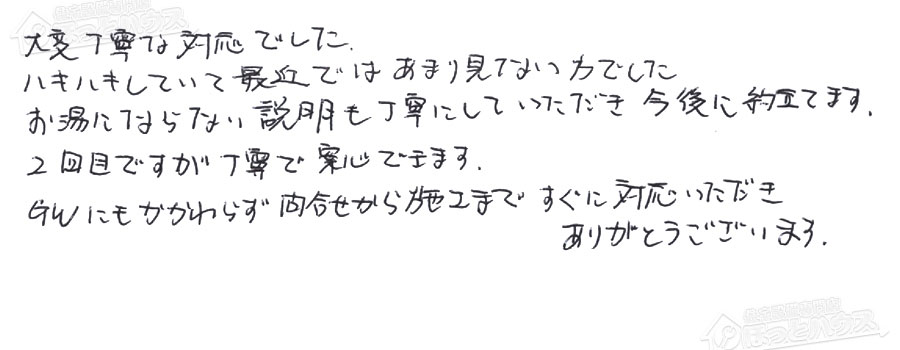 大変丁寧な対応でした.
ハキハキしていて最近ではあまり見ない方でした
お湯にならない説明も丁寧にしていただき今後に約立てます.
2回目ですが丁寧で安心できます.
GWにもかかわらず問合せから施工まですぐに対応いただき
ありがとうございます.
住宅設備専門店
ほっとハウス
住宅設備専門店
ほっとハウス